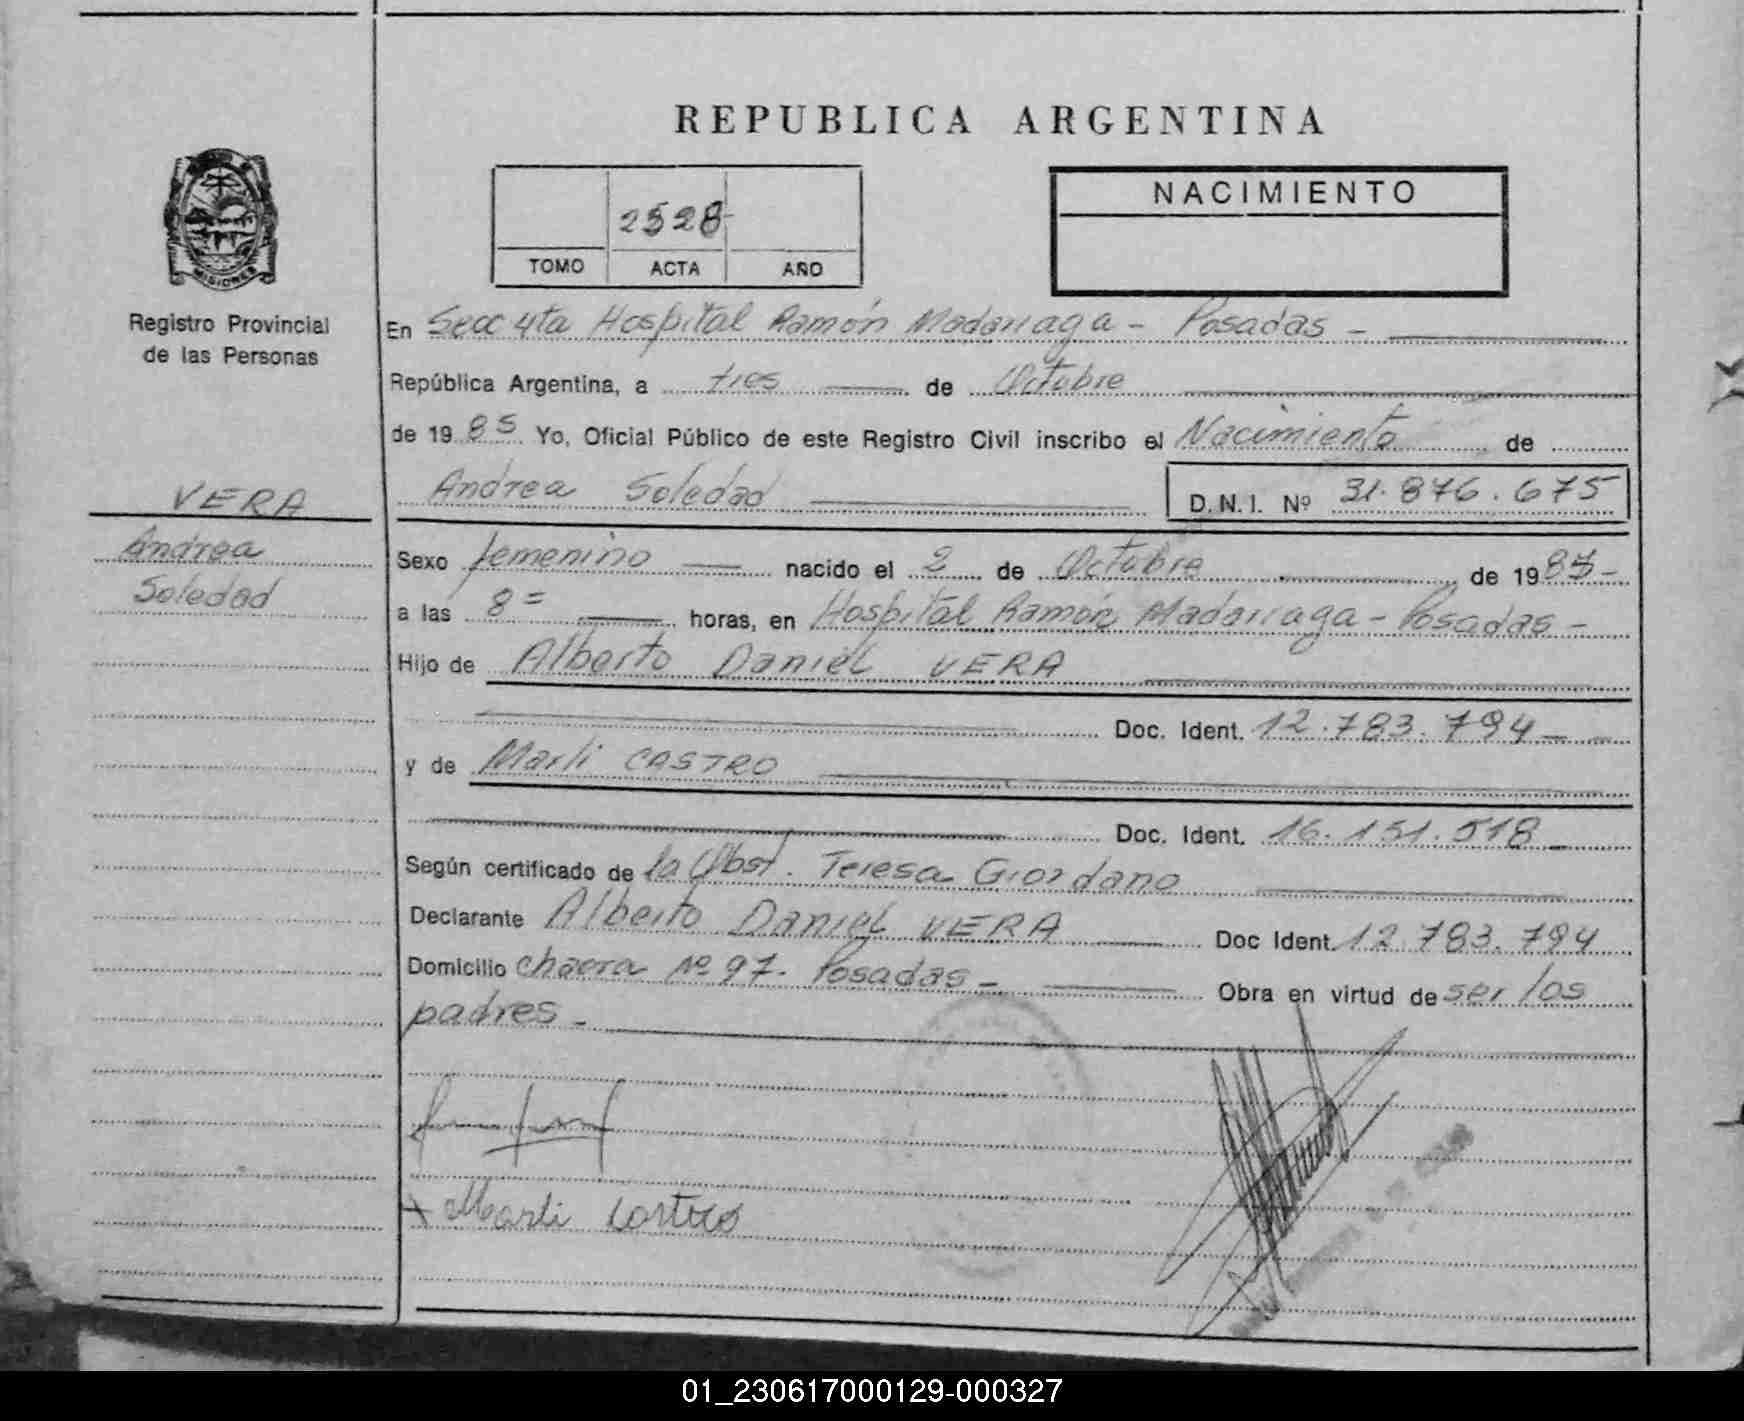 REPUBLICA ARGENTINA
NACIMIENTO
2528
TOMO ACTA AÑO
MISIONES
Registro Provincial
de las Personas
En Secc 4ta Hospital Ramón Madariaga - Posadas -
República Argentina, a tres de Octubre
de 1985 Yo, Oficial Público de este Registro Civil inscribo el Nacimiento de
Andrea Soledad D.N.I. Nº 31.876.675
VERA
Andrea
Soledad
Sexo femenino nacido el 2 de Octubre de 1985-
a las 8= horas, en Hospital Ramón Madariaga - Posadas -
Hijo de Alberto Daniel VERA
Doc. Ident. 12.783.794 -
y de Marli CASTRO
Doc. Ident. 16.151.518 -
Según certificado de la Obst. Teresa Giordano
Declarante Alberto Daniel VERA Doc Ident. 12.783.794
Domicilio chacra Nº 97. Posadas - Obra en virtud de ser los
padres -
x Marli Castro
01_230617000129-000327